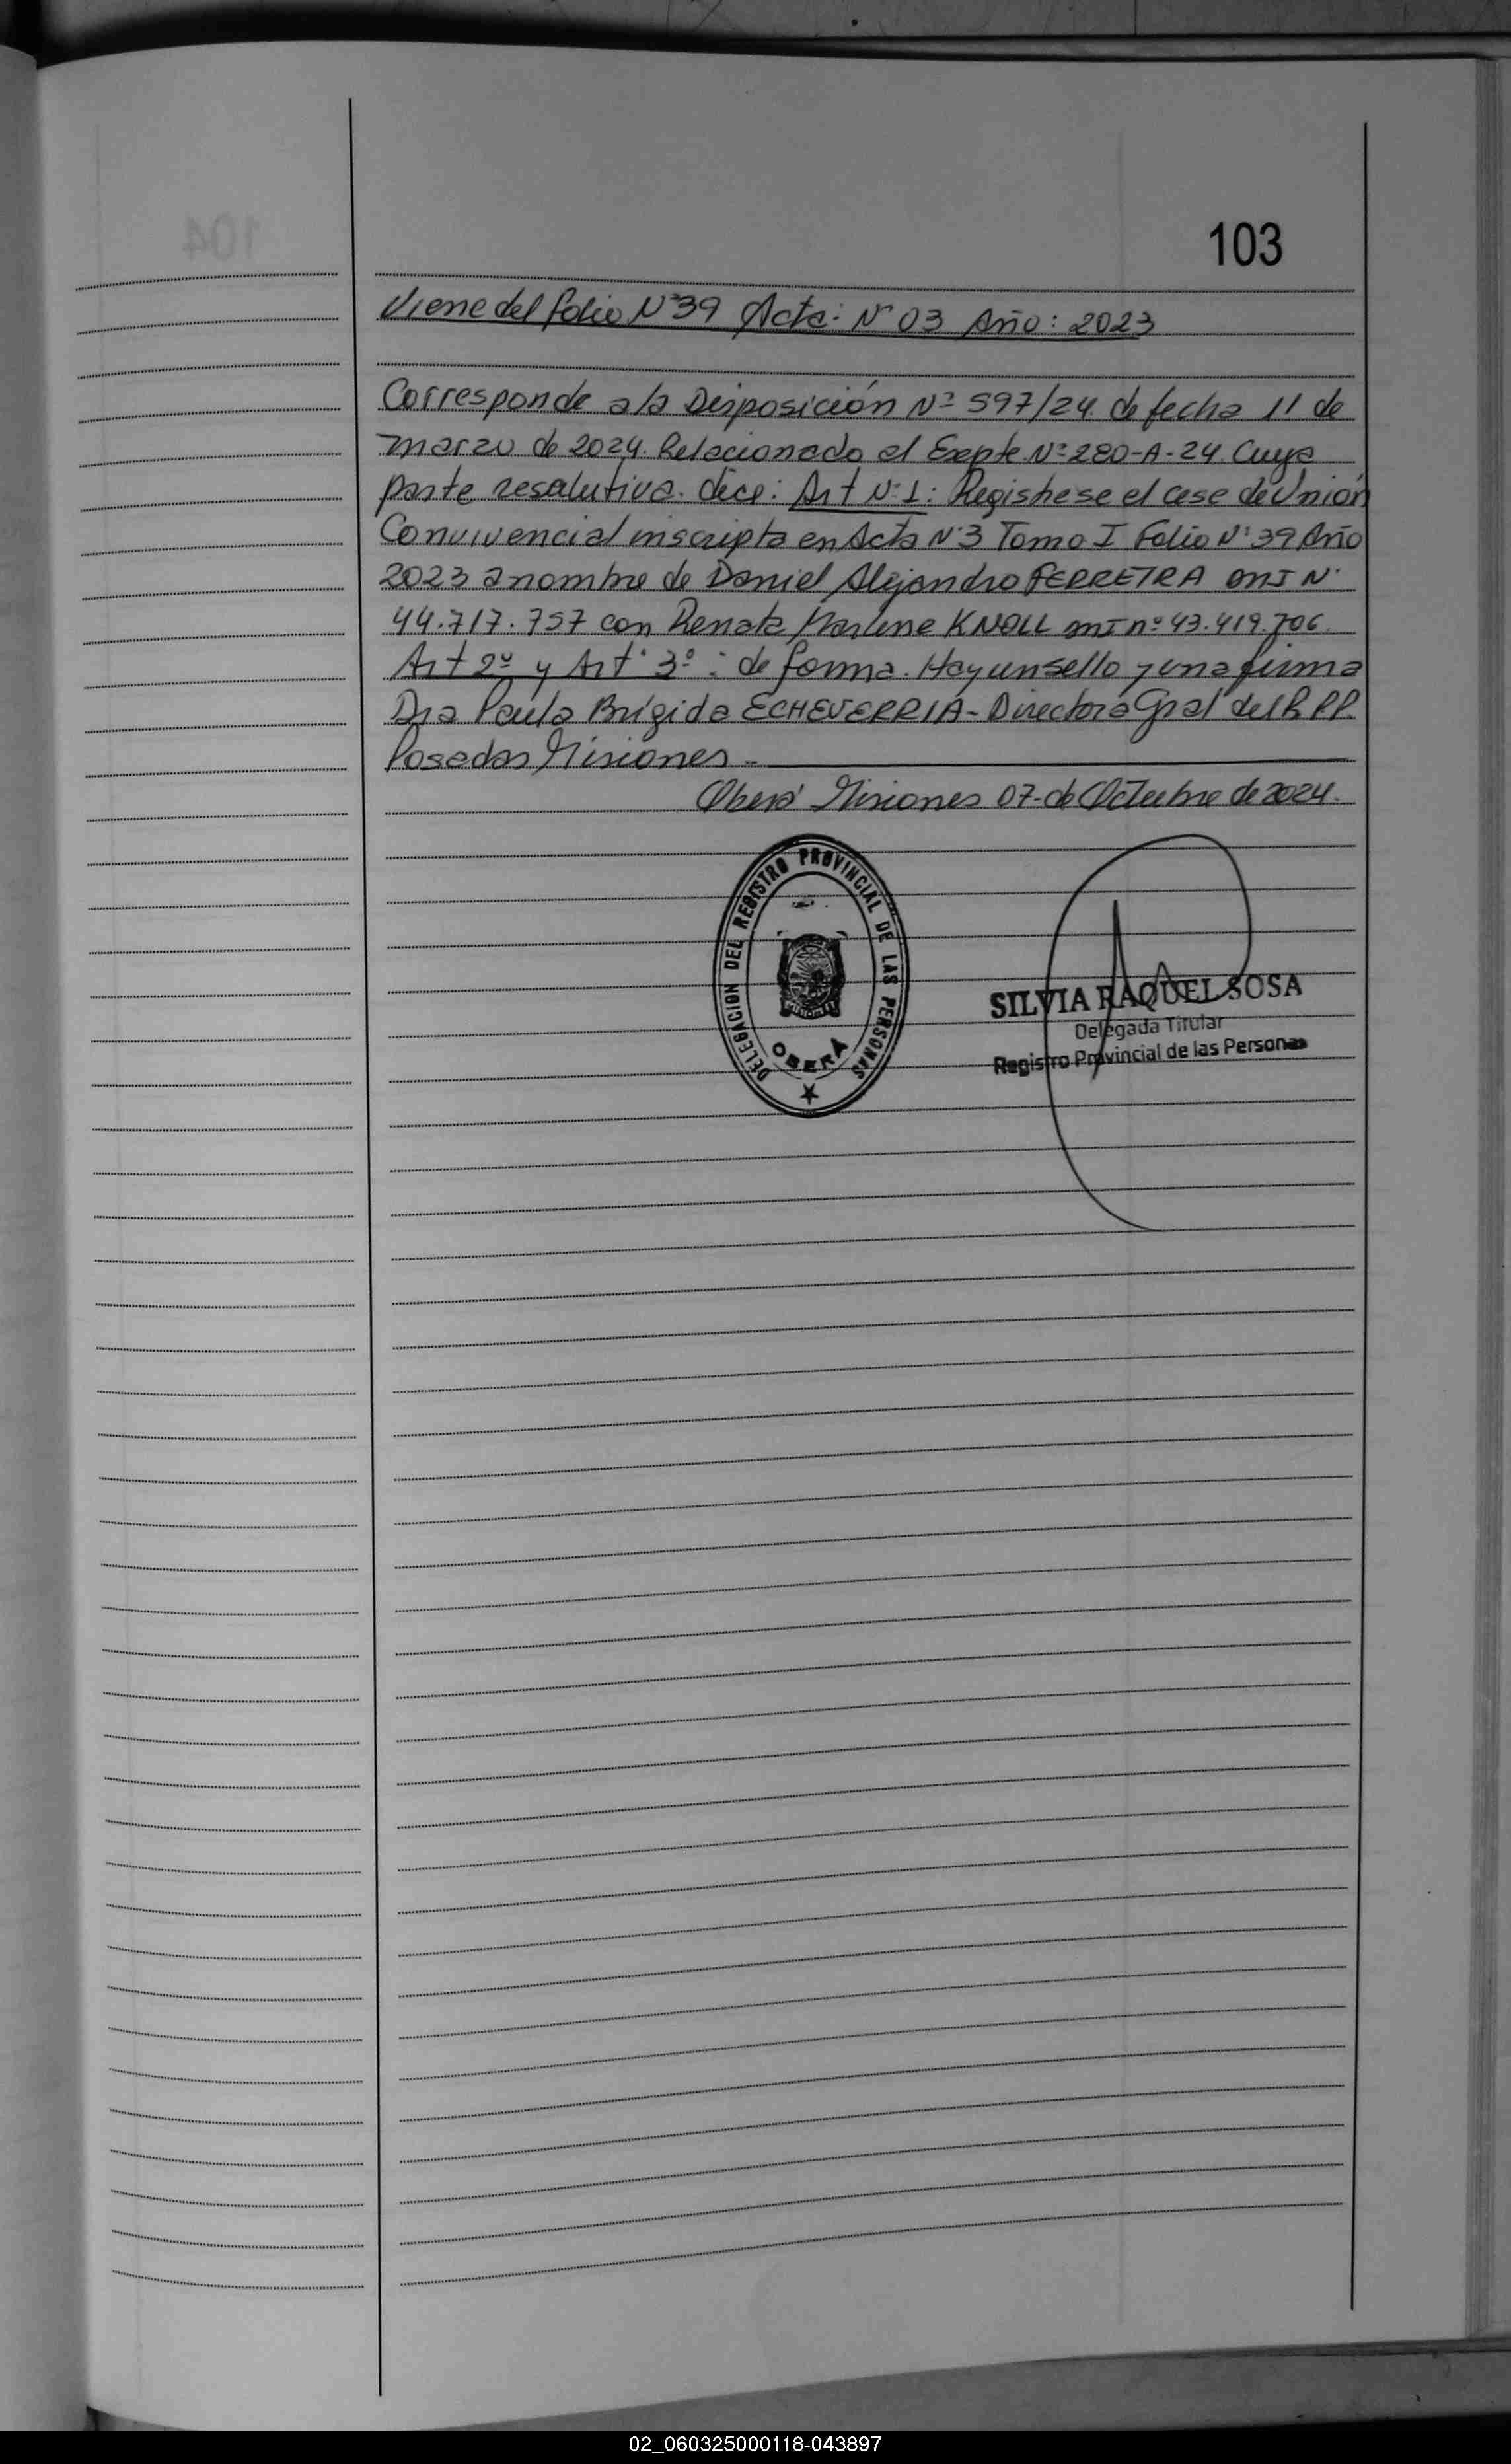 103
Viene del folio N°39 Acta: N° 03 Año: 2023
Corresponde a la Disposición N° 597/24. de fecha 11 de
marzo de 2024. Relacionado al Expte N° 280-A-24. Cuya
parte resolutiva. dice: Art N°1: Registrese el cese de Unión
Convivencial inscripta en Acta N°3 Tomo I Folio N°39 Año
2023 a nombre de Daniel Alejandro FERREIRA MI N°
44.717.757 con Renata Marlene KNOLL MI n° 43.419.706.
Art 2° y Art° 3°: de forma. Hay un sello y una firma
Dra Paula Brígida ECHEVERRIA - Directora Gral del R.P.P.
Posadas Misiones.-
Oberá Misiones 07 de Octubre de 2024.
DELEGACION DEL REGISTRO PROVINCIAL DE LAS PERSONAS
OBERÁ
SILVIA RAQUEL SOSA
Delegada Titular
Registro Provincial de las Personas
02_060325000118-043897